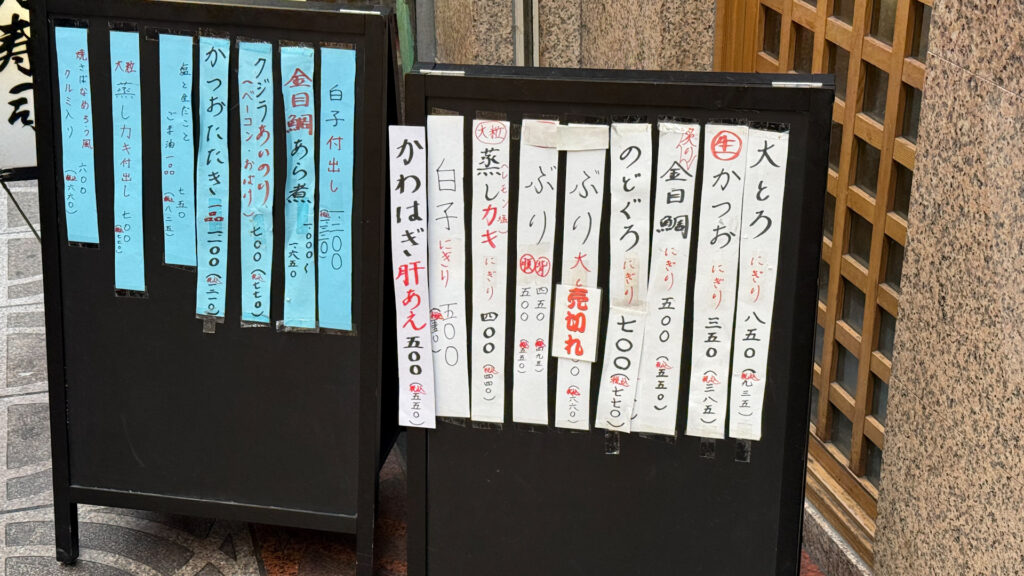 大とろ にぎり 八五〇(税込九三五)
生 かつお にぎり 三五〇(税込三八五)
炙り 金目鯛 にぎり 五〇〇(税込五五〇)
のどぐろ にぎり 七〇〇(税込七七〇)
ぶり 大 売切れ
ぶり 四五〇(税込四九五) 五〇〇(税込五五〇)
大粒 蒸しカキ にぎり 四〇〇(税込四四〇)
白子 にぎり 五〇〇
かわはぎ肝あえ 五〇〇(税込五五〇)
白子付出し 一二〇〇
金目鯛あら煮 一五〇〇〜
クジラあいのり(ベーコン おばり) 七〇〇(税込七七〇)
かつおたたき 一品 一一〇〇
塩と生だこと ごま油 一品 七五〇(税込八二五)
大粒 蒸しカキ付出し 七〇〇(税込七七〇)
焼さばなめろう風 クルミ入り 六〇〇(税込六六〇)
寿司